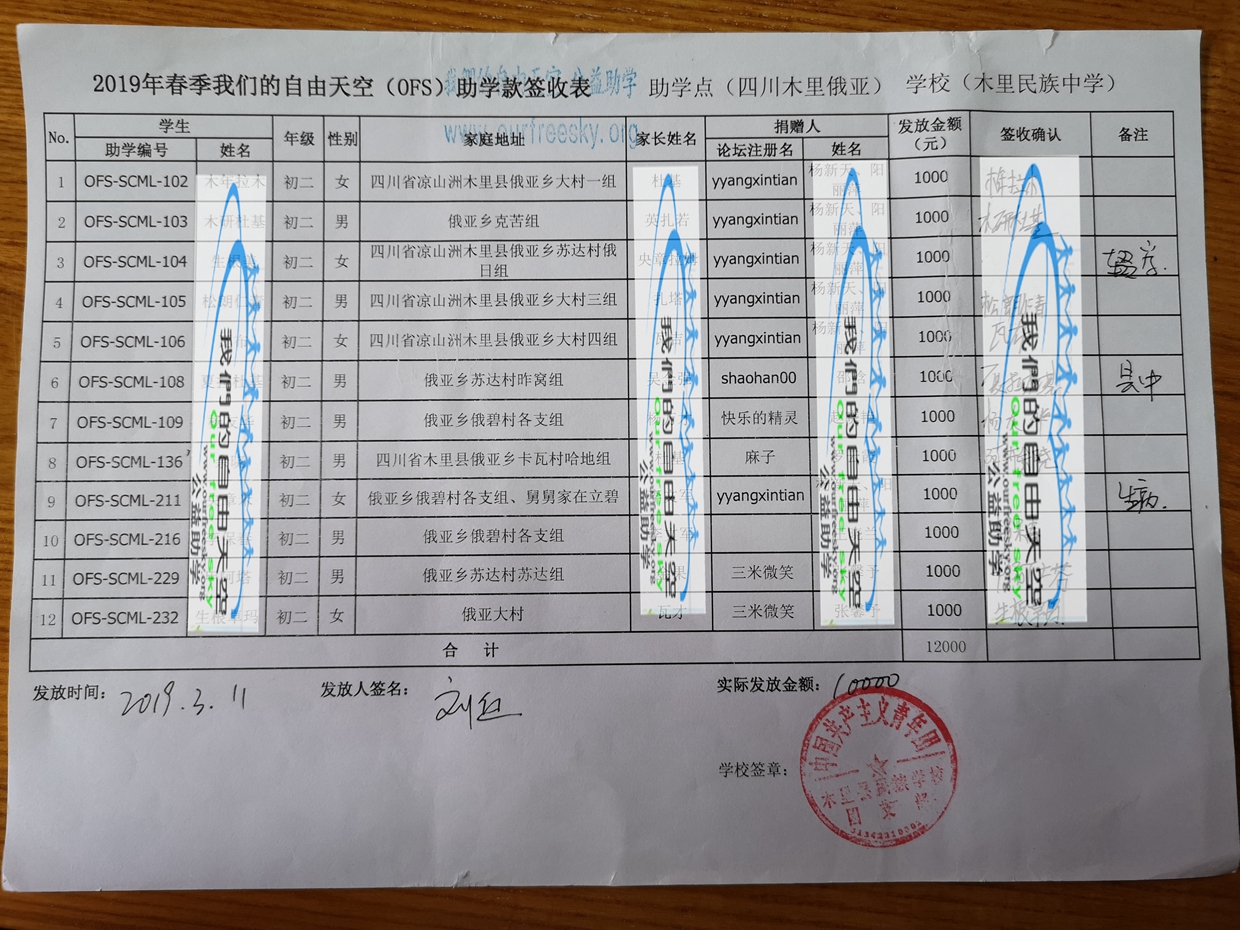 2019年春季我们的自由天空（OFS）助学款签收表 助学点（四川木里俄亚） 学校（木里民族中学）
www.ourfreesky.org
No. 学生 年级 性别 家庭地址 家长姓名 捐赠人 发放金额（元） 签收确认 备注
助学编号 姓名 论坛注册名 姓名
1 OFS-SCML-102 初二 女 四川省凉山洲木里县俄亚乡大村一组 杜基 yyangxintian 杨新天、阳丽萍 1000
2 OFS-SCML-103 木研杜基 初二 男 俄亚乡克苦组 英扎若 yyangxintian 杨新天、阳丽萍 1000 木研杜基
3 OFS-SCML-104 初二 女 四川省凉山洲木里县俄亚乡苏达村俄日组 yyangxintian 杨新天、阳丽萍 1000
4 OFS-SCML-105 初二 男 四川省凉山洲木里县俄亚乡大村三组 扎塔 yyangxintian 杨新天、阳丽萍 1000
5 OFS-SCML-106 初二 女 四川省凉山洲木里县俄亚乡大村四组 yyangxintian 1000
6 OFS-SCML-108 初二 男 俄亚乡苏达村昨窝组 shaohan00 1000 县中
7 OFS-SCML-109 初二 男 俄亚乡俄碧村各支组 快乐的精灵 1000
8 OFS-SCML-136 初二 男 四川省木里县俄亚乡卡瓦村哈地组 麻子 1000
9 OFS-SCML-211 初二 女 俄亚乡俄碧村各支组、舅舅家在立碧 yyangxintian 1000 生病.
10 OFS-SCML-216 初二 男 俄亚乡俄碧村各支组 1000
11 OFS-SCML-229 初二 男 俄亚乡苏达村苏达组 三米微笑 1000
12 OFS-SCML-232 初二 女 俄亚大村 瓦才 三米微笑 张馨予 1000
合 计 12000
我们的自由天空
Our free sky
www.ourfreesky.org
公益助学
我们的自由天空
Our free sky
www.ourfreesky.org
公益助学
我们的自由天空
Our free sky
www.ourfreesky.org
公益助学
我们的自由天空
Our free sky
www.ourfreesky.org
公益助学
发放时间： 2019.3.11 发放人签名： 刘红 实际发放金额： 10000
学校签章：
中国共产主义青年团
木里县民族学校
团支部